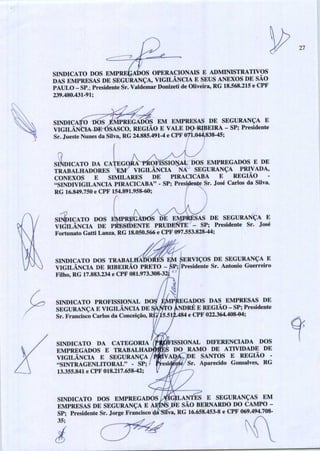 27
SINDICATO DOS EMPREGADOS OPERACIONAIS E ADMINISTRATIVOS
DAS EMPRESAS DE SEGURANÇA, VIGILÂNCIA E SEUS ANEXOS DE SÃO
PAULO – SP.; Presidente Sr. Valdemar Donizeti de Oliveira, RG 18.568.215 e CPF
239.480.431-91;
SINDICATO DOS EMPREGADOS EM EMPRESAS DE SEGURANÇA E
VIGILÂNCIA DE OSASCO, REGIÃO E VALE DO RIBEIRA – SP; Presidente
Sr. Joeste Nunes da Silva, RG 24.885.491-4 e CPF 071.044.838-45;
SINDICATO DA CATEGORIA PROFISSIONAL DOS EMPREGADOS E DE
TRABALHADORES EM VIGILÂNCIA NA SEGURANÇA PRIVADA,
CONEXOS E SIMILARES DE PIRACICABA E REGIÃO -
"SINDIVIGILANCIA PIRACICABA" - SP; Presidente Sr. José Carlos da Silva.
RG 16.849.750 e CPF 154.891.958-60;
SINDICATO DOS EMPREGADOS DE EMPRESAS DE SEGURANÇA E
VIGILÂNCIA DE PRESIDENTE PRUDENTE – SP; Presidente Sr. José
Fortunato Gatti Lanza. RG 18.050.566 e CPF 097.553.828-44;
SINDICATO DOS TRABALHADORES EM SERVIÇOS DE SEGURANÇA E
VIGILÂNCIA DE RIBEIRÃO PRETO – SP; Presidente Sr. Antonio Guerreiro
Filho, RG 17.883.234 e CPF 081.973.308-32;
SINDICATO PROFISSIONAL DOS EMPREGADOS DAS EMPRESAS DE
SEGURANÇA E VIGILÂNCIA DE SANTO ANDRÉ E REGIÃO – SP; Presidente
Sr. Francisco Carlos da Conceição, RG 15.512.484 e CPF 022.364.408-04;
SINDICATO DA CATEGORIA PROFISSIONAL DIFERENCIADA DOS
EMPREGADOS E TRABALHADORES DO RAMO DE ATIVIDADE DE
VIGILÂNCIA E SEGURANÇA PRIVADA DE SANTOS E REGIÃO -
"SINTRAGENLITORAL" - SP; Presidente Sr. Aparecido Gonsalves, RG
13.355.841 e CPF 018.217.658-42;
SINDICATO DOS EMPREGADOS VIGILANTES E SEGURANÇAS EM
EMPRESAS DE SEGURANÇA E AFINS DE SÃO BERNARDO DO CAMPO –
SP; Presidente Sr. Jorge Francisco da Silva, RG 16.658.453-8 e CPF 069.494.708-
35;